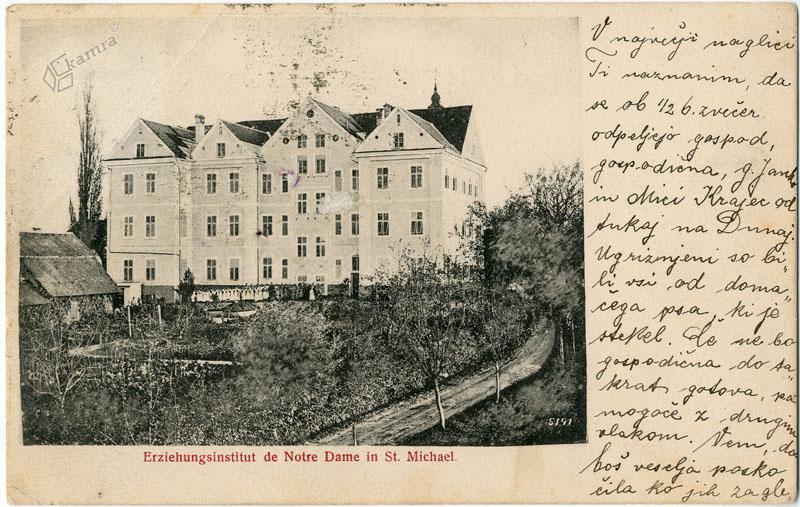 kamra
©
V največji naglici
Ti naznanim, da
se ob 1/2 6. zvečer
odpeljejo gospod,
gospodična, g. Janko
in Mici Krajec od
tukaj na Dunaj.
Ugriznjeni so bi"
li vsi od doma"
čega psa, ki je
stekel. Če ne bo
gospodična do ta"
krat gotova, pa
mogoče z drugim
vlakom. Vem, da
boš veselja posko
čila ko jih zagle
5141
Erziehungsinstitut de Notre Dame in St. Michael.